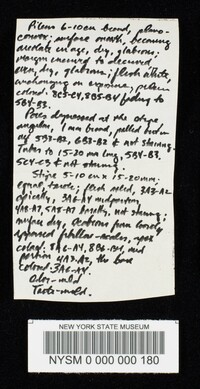 Pileus 6-10cm broad, plano-
convex; surface smooth, becoming
areolate in age, dry, glabrous;
margin incurved to decurved,
even, dry, glabrous; flesh white,
unchanging on exposure, pileus
colored 3C5-C4, 5B4 fading to
5B4-B3.
Pores depressed at the stipe,
angular, 1 mm broad, colored
5B3-B2, 6B3-B2 & not staining.
Tubes to 15-20 mm long, 5B4-B3,
5C4-C3 & not staining.
Stipe 5-10cm x 15-20mm.
equal, terete; flesh solid, 3A3-A2
apically, 3A6-A4 midportion,
4A8-A7, 5A8-A7 basally, not staining;
surface dry,
appressed fibrillose-scales, apex
colored 3A6-A4, mid
portion 4A3-A2, the base
colored 3A6-A4.
Odor-mild
Taste-mild.
NEW YORK STATE MUSEUM
NYSM 0 000 000 180